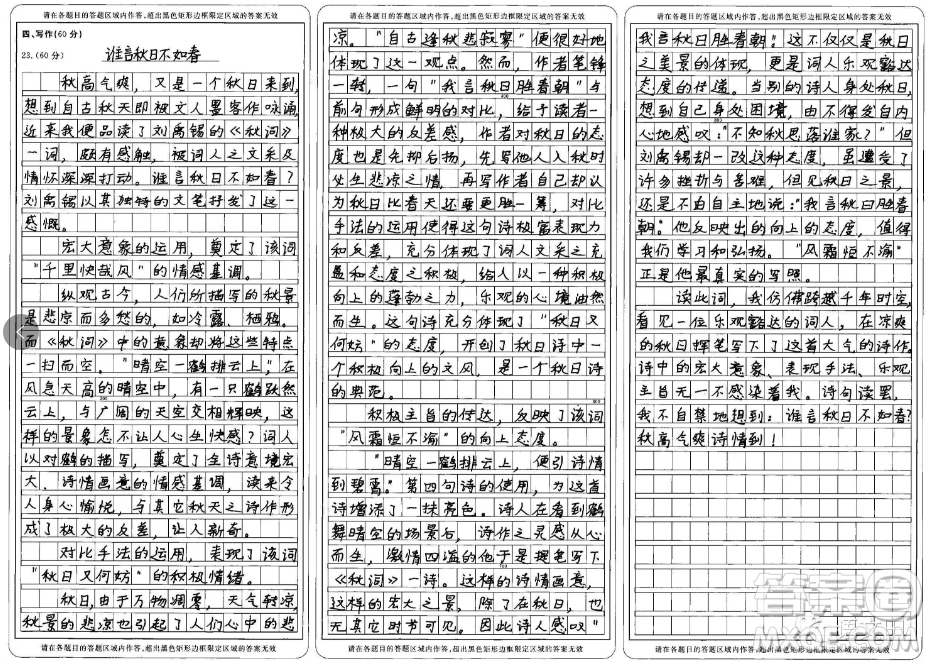 请在各题目的答题区域内作答,超出黑色矩形边框限定区域的答案无效
四、写作(60分)
23.(60分)
谁言秋日不如春
秋高气爽，又是一个秋日来到，
想到自古秋天即被文人墨客作咏诵，
近来我便品读了刘禹锡的《秋词》
一词，颇有感触，被词人之文采及
情怀深深打动。谁言秋日不如春？
刘禹锡以其独特的文笔抒发了这一
感慨。
宏大意象的运用，奠定了该词
"千里快哉风"的情感基调。
纵观古今，人们所描写的秋景
是悲凉而多愁的，如冷露、栖鸦。
而《秋词》中的意象却将这些特点
一扫而空。"晴空一鹤排云上"，在
风急天高的晴空中，有一只鹤跃然
云上，与广阔的天空交相辉映，这
样的景象怎不让人心生快感？词人
以对鹤的描写，奠定了全诗意境宏
大、诗情画意的情感基调，读来令
人身心愉悦，与其它秋天之诗作形
成了极大的反差，让人新奇。
对比手法的运用，表现了该词
"秋日又何妨"的积极情绪。
秋日，由于万物凋零，天气转凉，
秋景的悲凉也引起了人们心中的悲
请在各题目的答题区域内作答,超出黑色矩形边框限定区域的答案无效
请在各题目的答题区域内作答,超出黑色矩形边框限定区域的答案无效
凉。"自古逢秋悲寂寥"便很好地
体现了这一观点。然而，作者笔锋
一转，一句"我言秋日胜春朝"与
前句形成鲜明的对比，给于读者一
种极大的反差感，作者对秋日的态
度也是先抑后扬，先写他人入秋时
坐生悲凉之情，再写作者自己却认
为秋日比春天还要更胜一筹，对比
手法的运用使得这句诗极富表现力
和反差，充分体现了词人文采之充
盈和态度之积极，给人以一种积极
向上的蓬勃之力，乐观的心境油然
而生。这句诗充分体现了"秋日又
何妨"的态度，开创了秋日诗中一
个积极向上的文风，是一个秋日诗
的典范。
积极主旨的传达，反映了该词
"风霜恒不渝"的向上态度。
"晴空一鹤排云上，便引诗情
到碧霄。"第四句诗的使用，为这首
诗增添了一抹亮色。诗人在看到鹤
舞晴空的场景后，诗作之灵感从心
而生，激情四溢的他于是提笔写下
《秋词》一诗。这样的诗情画意，
这样的宏大之景，除了在秋日，也
无其它时节可见。因此诗人感叹"
请在各题目的答题区域内作答,超出黑色矩形边框限定区域的答案无效
请在各题目的答题区域内作答,超出黑色矩形边框限定区域的答案无效
我言秋日胜春朝！"这不仅仅是秋日
之美景的体现，更是词人乐观豁达
态度的传递。当别的诗人身处秋日，
想到自己身处困境，由不得发自内
心地感叹："不知秋思落谁家？"但
刘禹锡却一改这种态度，虽遭受了
许多挫折与苦难，但见秋日之景，
还是不由自主地说："我言秋日胜春
朝。"他反映出的向上的态度，值得
我们学习和弘扬。"风霜恒不渝"
正是他最真实的写照。
读此词，我仿佛跨越千年时空，
看见一位乐观豁达的词人，在凉爽
的秋日挥笔写下了这首大气的诗作。
诗中的宏大意象、表现手法、乐观
主旨无一不感染着我。诗句读罢，
我不自禁地想到：谁言秋日不如春？
秋高气爽诗情到！
请在各题目的答题区域内作答,超出黑色矩形边框限定区域的答案无效